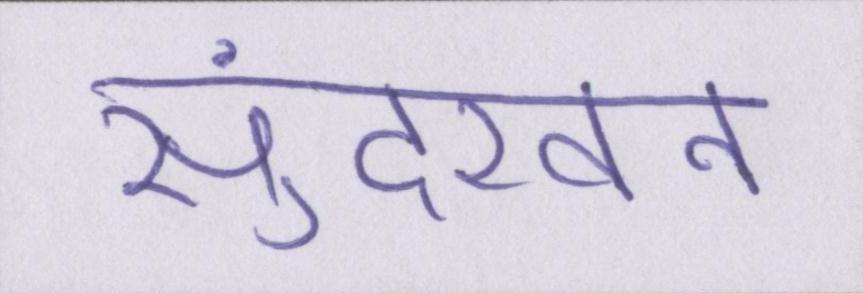 सुंदरवन